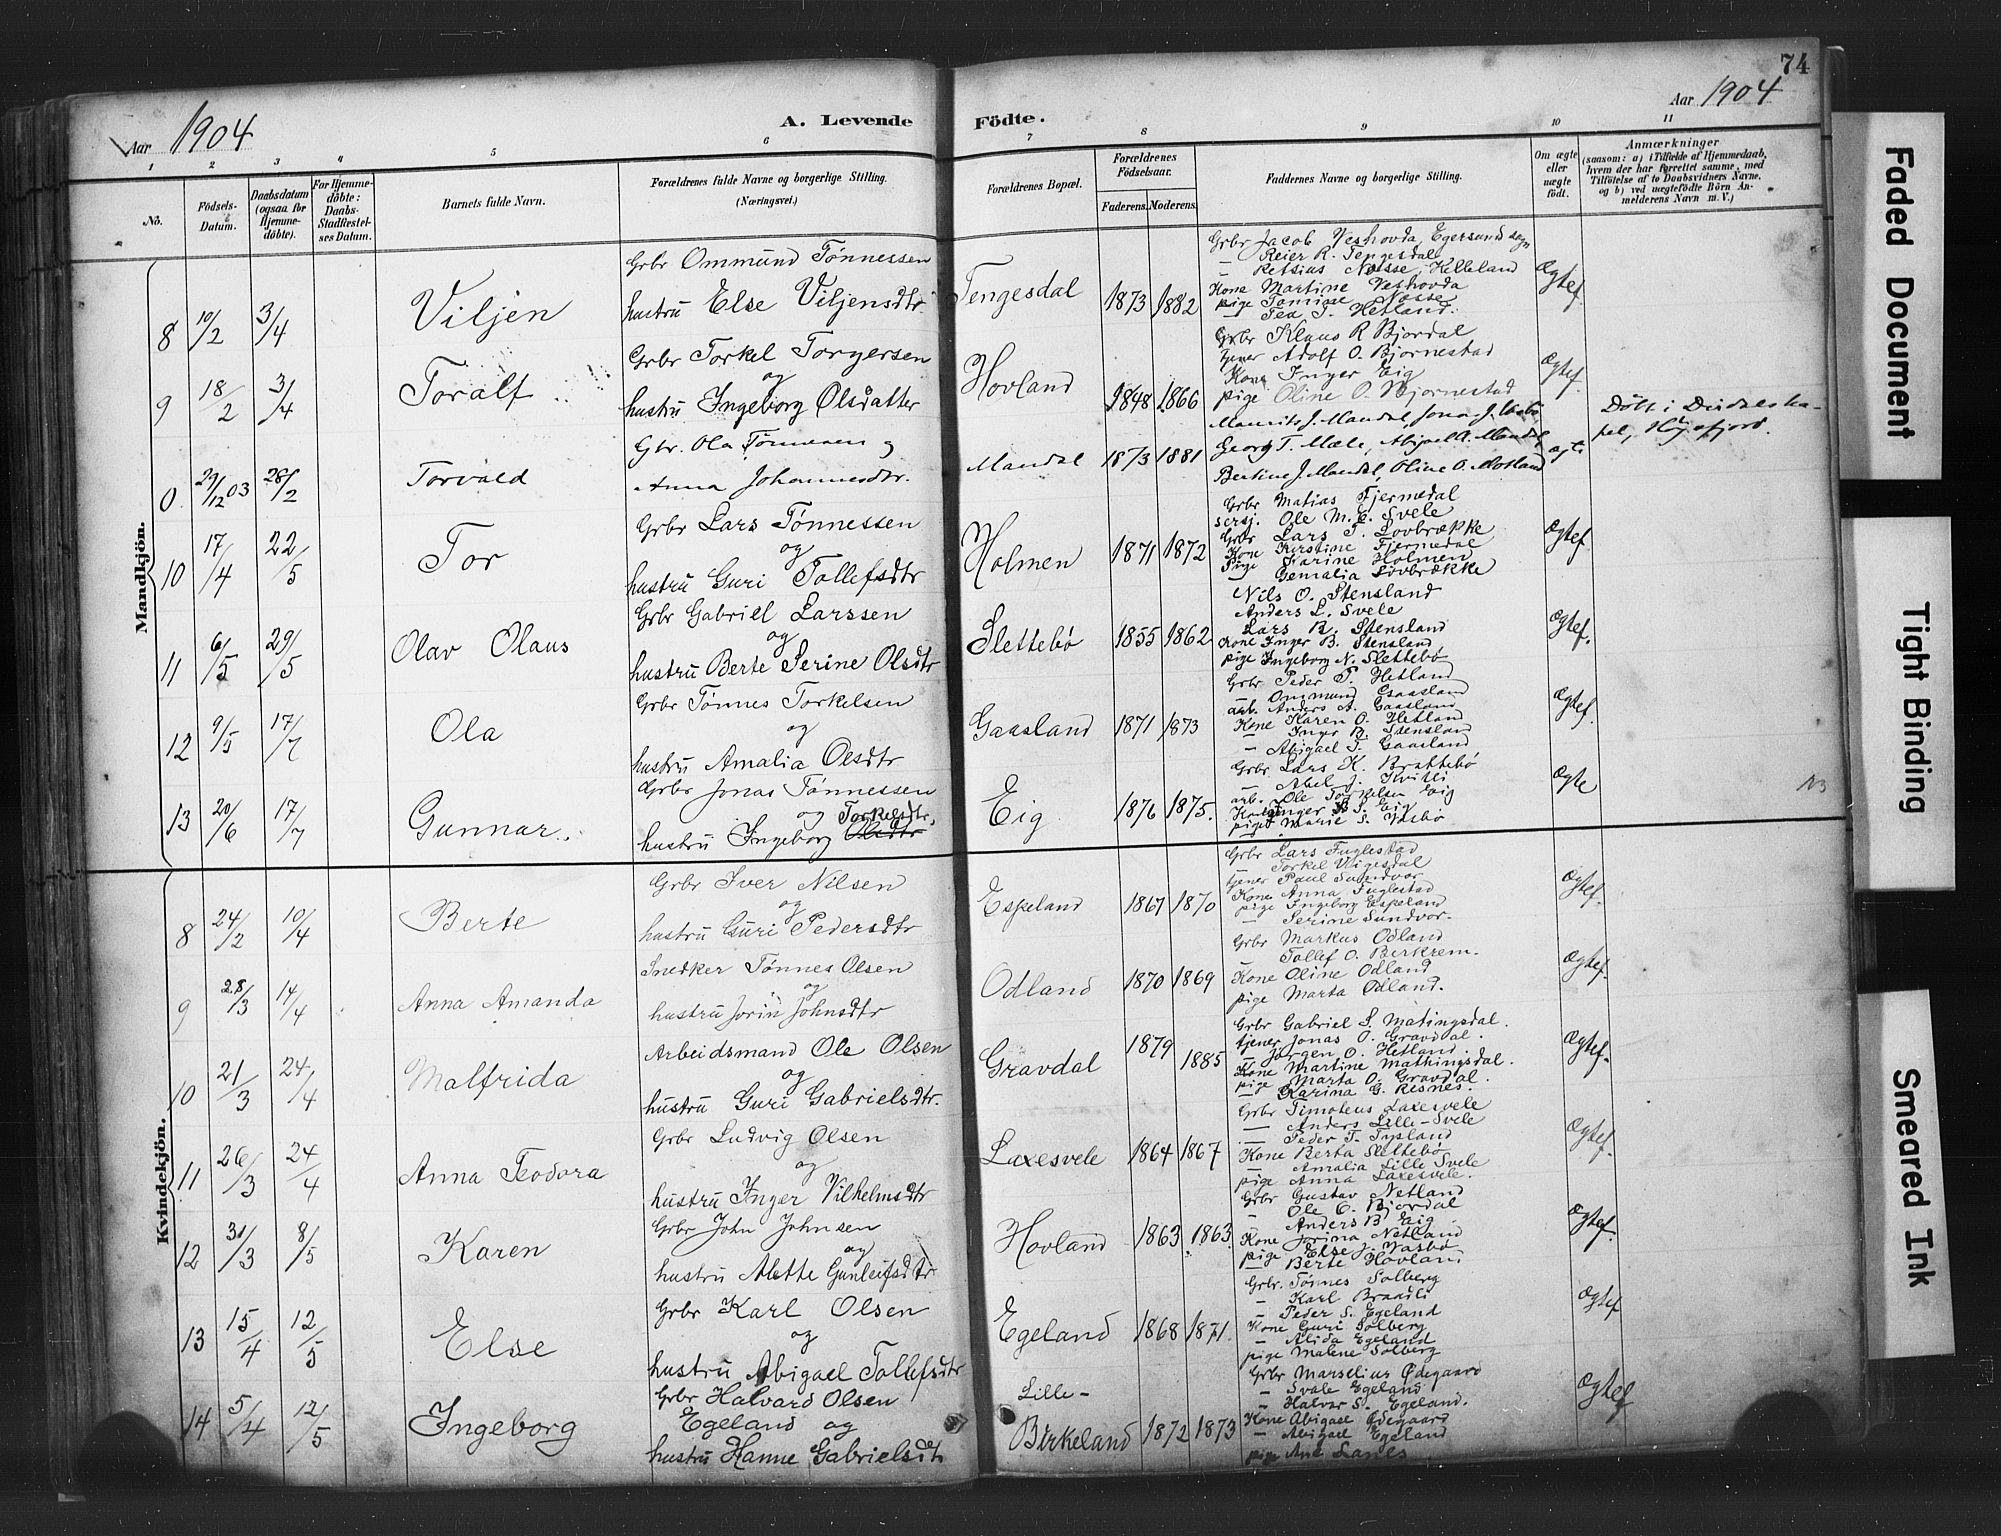 74
Aar 1904
A. Levende
Födte.
Aar 1904
1 2 3 4 5 6 7 8 9 10 11
No.
Födsels-
Datum.
Daabsdatum
(ogsaa for
Hjemme-
döbte).
For Hjemme-
döbte:
Daabs-
Stadfæstel-
ses Datum.
Barnets fulde Navn.
Forældrenes fulde Navne og borgerlige Stilling.
(Næringsvei.)
Forældrenes Bopæl.
Forældrenes
Födselsaar.
Faderens. Moderens.
Faddernes Navne og borgerlige Stilling.
Om ægte
eller
uægte
födt.
Anmærkninger
(saasom: a) i Tilfælde af Hjemmedaab,
hvem der har forrettet samme, med
Tilföielse af to Daabsvidners Navne,
og b) ved uægtefödte Börn An-
melderens Navn m. V.)
Mandkjön.
8 10/2 3/4 Viljen
Grbr Ommund Tønnessen
hustru Else Viljensdtr.
Tengesdal 1873 1882
Grbr Jacob Veshovda, Egersund sogn
Reier R. Tengesdal
Kone Martine Veshovda
Ægtef.
9 18/2 3/4 Toralf
Grbr Torkel Torgersen
og
hustru Ingeborg Olsdatter
Hovland 1848 1866
Grbr Klaus R Bjordal
tjener Adolf O. Bjornestad
Kone Inger Eig
pige Oline O. Bjornestad
Ægtef.
0 29/12 03 28/2 Torvald
Gbr. Ola Tønnesen
Anna Johannesdtr.
Mandal 1873 1881
Maurits J. Mandal,
Georg T. Mæle, Abigael A. Mandal,
Bertine J. Mandal, Oline O. Motland
ægte
Døbt i Dirdals ka-
pel, Høgsfjord.
10 17/4 22/5 Tor
Grbr Lars Tønnessen
og
hustru Guri Tollefsdtr
Holmen 1871 1872
Grbr Matias Fjermedal
sersj. Ole M. E. Svele
Grbr Lars T. Lovbrække
Kone Kirstine Fjermedal
Pige Karine Holmen
Gemalia Lovbrække
Ægtef.
11 6/5 29/5 Olav Olaus
Grbr Gabriel Larssen
og
hustru Berte Serine Olsdtr
Slettebø 1855 1862.
Nils O. Stensland
Anders L. Svele
Lars R. Stensland
Kone Inger B. Stensland
pige Ingeborg N. Slettebø
Ægtef.
12 9/5 17/7 Ola
Grbr Tønnes Torkelsen
og
hustru Amalia Olsdtr
Gaasland 1871 1873
Grbr Peder P. Hetland
Ommund Gaasland
arb. Anders A. Gaasland
Kone Karen O. Hetland
— Inger B. Stensland
— Abigael T. Gaasland
Ægtef.
13 20/6 17/7 Gunnar.
Grbr Jonas Tønnessen
og Torkelsdtr.
hustru Ingeborg Olsdtr
Eig 1876 1875.
Grbr Lars K. Brattebø
— Abel J. Kvitli
arb. Ole Torkelsen Eig
Kone Inger B. S. Eig
pige Marie S. Vasbø
Ægte
Kvindekjön.
8 24/2 10/4 Berte
Grbr Iver Nilsen
og
hustru Guri Pedersdtr
Espeland 1867 1870
Grbr Lars Fuglestad
Torkel Vigesdal
tjener Paul Sundvor
Kone Anna Fuglestad
pige Ingeborg Espeland
— Serine Sundvor
Ægtef.
9 28/3 14/4 Anna Amanda
Snedker Tønnes Olsen
og
hustru Jorin Johnsdtr
Odland 1870 1869
Grbr Markus Odland
Tollef O. Berkrem.
Kone Oline Odland
pige Marta Odland.
Ægtef.
10 21/3 24/4 Malfrida
Arbeidsmand Ole Olsen
og
hustru Guri Gabrielsdtr.
Gravdal 1879 1885
Grbr Gabriel S. Matingsdal.
tjener Jonas O. Gravdal.
— Jørgen O. Hetland.
Kone Martine Mathingsdal.
pige Marta O. Gravdal.
— Karina G. Resnes.
Ægtef.
11 26/3 24/4 Anna Teodora
Grbr Ludvig Olsen
og
hustru Inger Vilhelmsdtr
Laxesvele 1864 1867
Grbr Timoteus Laxesvele
— Anders Lille-Svele
— Peder T. Tysland
Kone Berta Slettebø
— Amalia Lille Svele
pige Anna Laxesvele.
Ægtef.
12 31/3 8/5 Karen
Grbr John Johnsen
og
hustru Alette Gunleifsdtr
Hovland 1863 1863
Grbr Gustav Netland
Ole O. Bjordal
— Anders B. Eig
Kone Jorina Netland
pige Else J. Vasbø
— Berte Hovland
Ægtef.
13 15/4 12/5 Else
Grbr Karl Olsen
og
hustru Abigael Tollefsdtr
Egeland 1868 1871.
Grbr. Tønnes Solberg
— Karl Braadli
— Peder S. Egeland
Kone Guri Solberg
— Alida Egeland
pige Malene Solberg
Ægtef
14 5/4 12/5 Ingeborg
Grbr Halvard Olsen
Egeland og
hustru Hanne Gabrielsdtr
Lille-
Birkeland 1872 1873
Grbr Marselius Ødegaard
— Svale Egeland
— Halvar S. Egeland.
Kone Abigael Ødegaard
— Abigael Egeland
pige Ane Lanes
Ægtef
Faded Document
Tight Binding
Smeared Ink